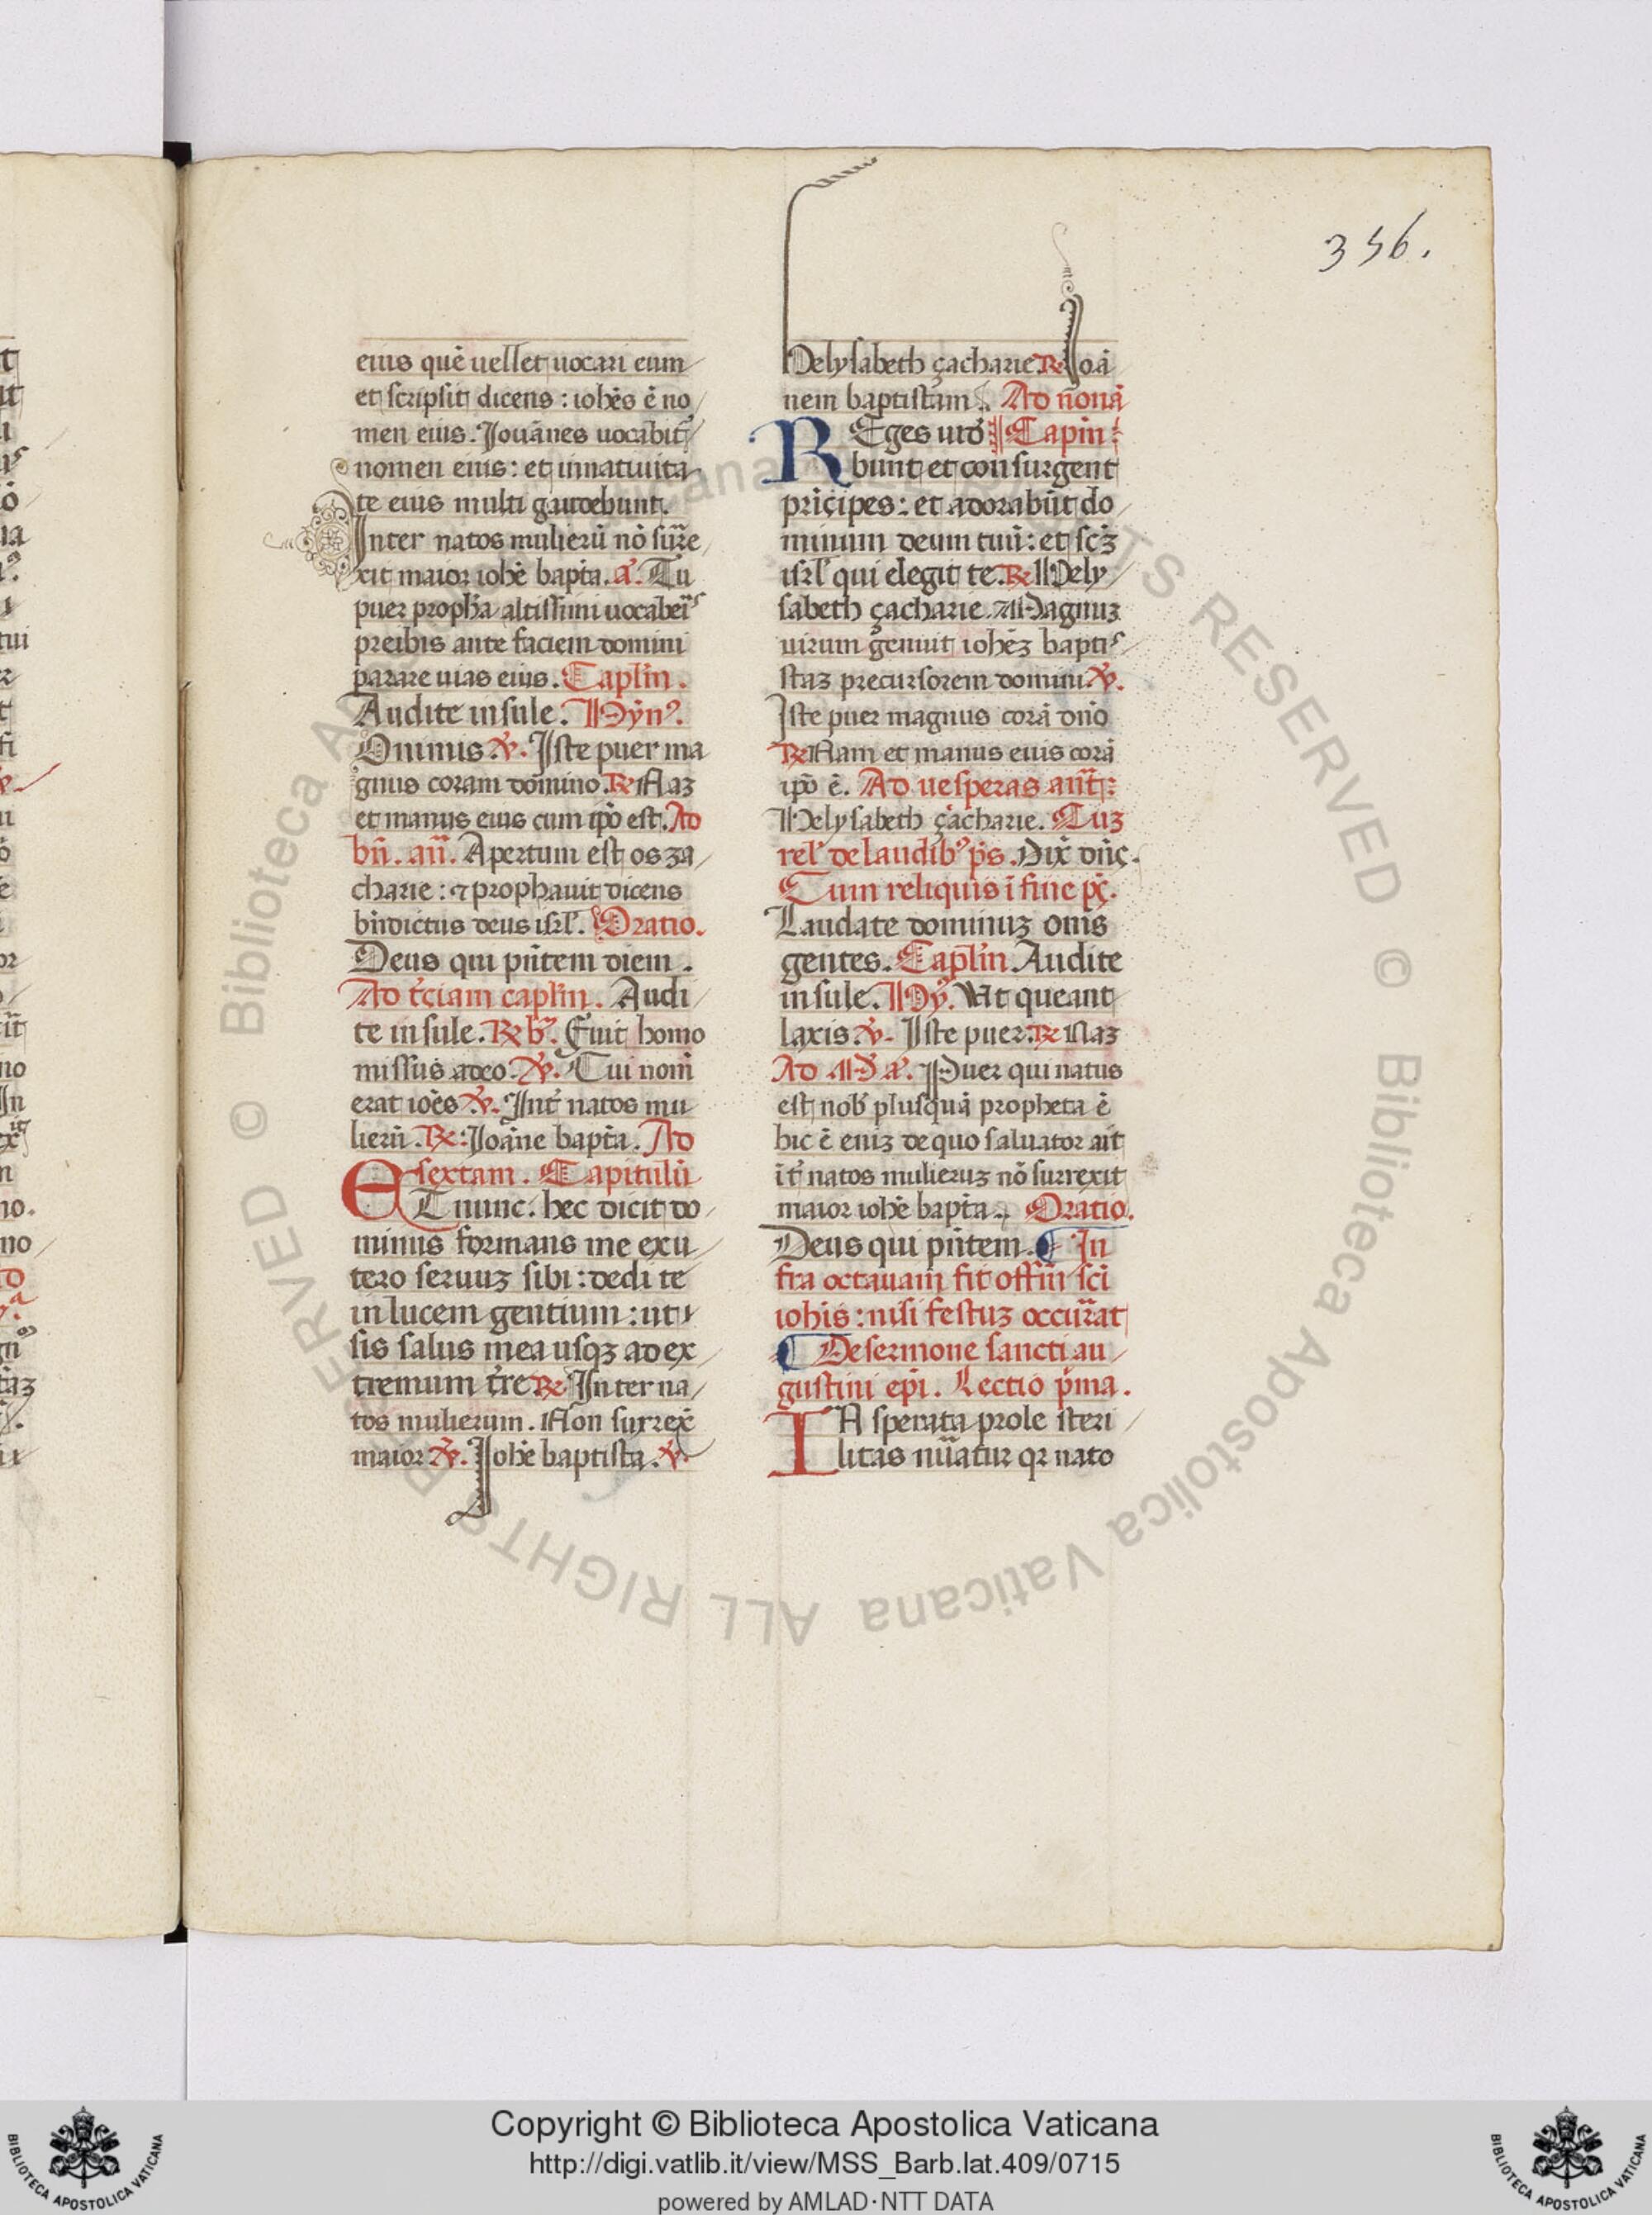 356.
eius quē uellet uocari eum
et scripsit dicens : iohēs ē no
men eius. Jouānes uocabit̄
nomen eius : et innatiuita
te eius multi gaudebunt.
Inter natos mulierū nō surre
xit maior iohē bapt̄a. a. Tu
puer proph̄a altissimi uocaber̄
preibis ante faciem domini
parare uias eius. Capl̄m.
Audite insule. Hȳn⁹.
Ominus. ℣. Iste puer ma
gnus coram domino. ℟ Naꝫ
et manus eius cum ip̄o est. Ad
bn̄. an̄. Apertum est os za
charie : ⁊ prophauit dicens
bn̄dictus deus isrl̄. Oratio.
Deus qui pn̄tem diem.
Ad t̄ciam capl̄m. Audi
te insule. ℟ b̄. Fuit homo
missus adeo. ℣. Cui nom̄
erat ioēs ℣. Int̄ natos mu
lierū. ℟: Joāne bapt̄a. Ad
sextam. Capitulū
ET nunc. hec dicit do
minus formans me exu
tero seruuꝫ sibi : dedi te
in lucem gentium : ut
sis salus mea usqꝫ ad ex
tremum t̄re ℟ Inter na
tos mulierum. Non surrex̄
maior ℣. Johē baptista. ℣
Helysabeth çacharie. ℟ Joā
nem baptistam. Ad nonā
REges uid̄ Capitl̄m
bunt et consurgent
prīçipes : et adorabūt do
minum deum tuū : et sc̄ꝫ
isrl̄ qui elegit te. ℟ Hely
sabeth çacharie. Magnuꝫ
uirum genuit iohēꝫ bapti
staꝫ precursorem domini. ℣.
Iste puer magnus corā dn̄o
℟ Nam et manus eius corā
ip̄o ē. Ad uesperas ant̄:
Helysabeth çacharie. Cuꝫ
rel' de laudib⁹ p̄s. Dix̄ dn̄s.
Cum reliquis ī fine p̄s.
Laudate dominuꝫ om̄s
gentes. Capl̄m Audite
insule. Hȳ. Ut queant
laxis. ℣. Iste puer. ℟ Naꝫ
Ad M̄ a. Puer qui natus
est nob̄ plusquā propheta ē
hic ē eniꝫ de quo saluator ait
īt̄ natos mulieruꝫ nō surrexit
maior iohē bapt̄a. Oratio.
Deus qui pn̄tem. ¶ In
fra octauam fit offm̄ sc̄i
iohīs : nisi festuꝫ occurrat
¶ De sermone sancti au
gustini ep̄i. Lectio p̄ma.
IA sperata prole steri
litas mūatur qꝛ nato
© Biblioteca Apostolica Vaticana ALL RIGHTS RESERVED
© Biblioteca Apostolica Vaticana ALL RIGHTS RESERVED
Copyright © Biblioteca Apostolica Vaticana
http://digi.vatlib.it/view/MSS_Barb.lat.409/0715
powered by AMLAD·NTT DATA
BIBLIOTECA APOSTOLICA VATICANA
BIBLIOTECA APOSTOLICA VATICANA